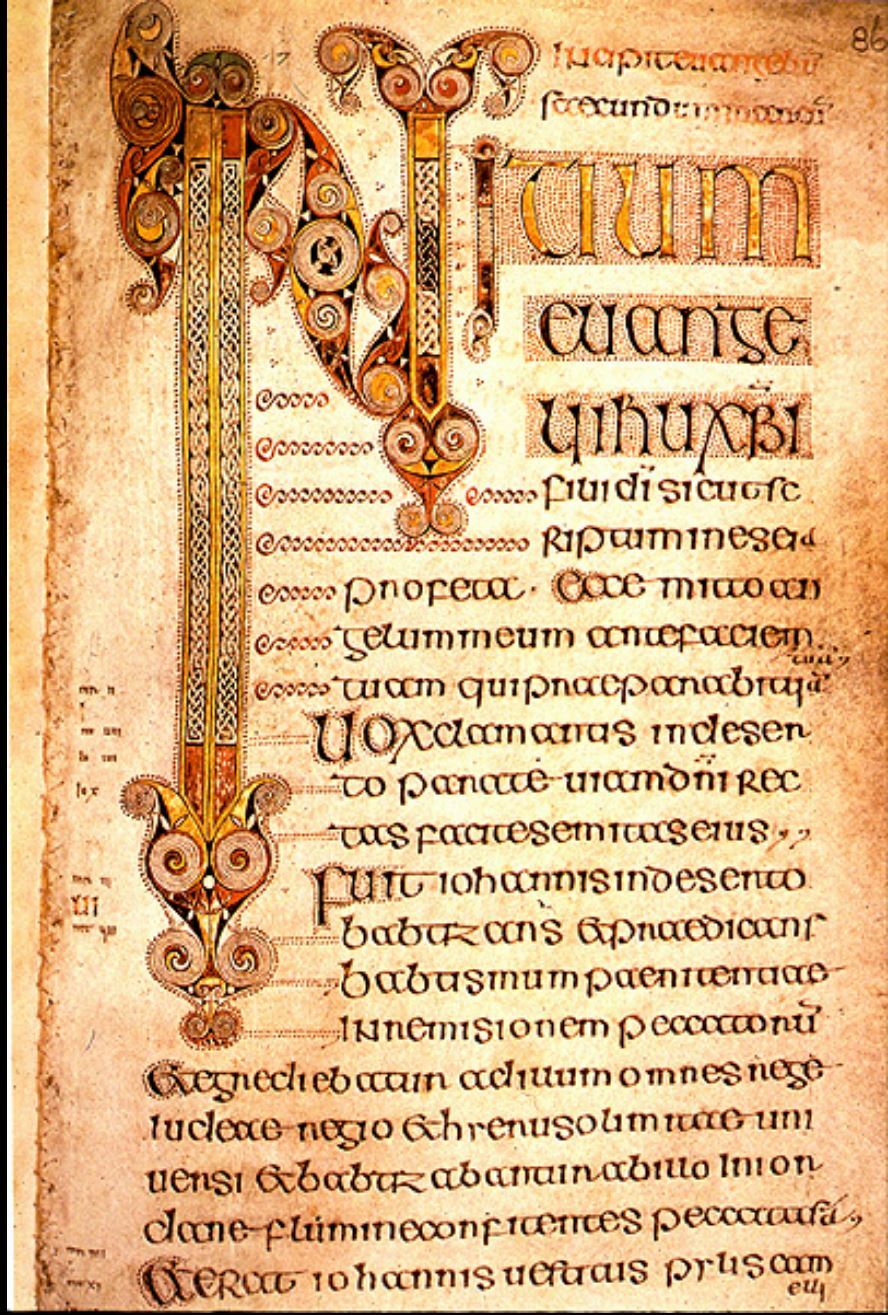 86
Incipit euangeliū
secundum marcū
INITIUM
euange
lii ihu xpi
filii dī sicut sc
riptum in esaia
profeta · Ecce mitto an
gelum meum ante faciem
tuam qui praeparabit uiā
tuā,,
Uox clamantis in deser
to parate uiam dn̄i rec
tas facite semitas eius,,
Fuit iohannis in deserto
babtizans et praedicans
babtismum paenitentiae
in remisionem peccatorū
Et egrediebatur ad illum omnes rege
iudeae regio et hierusolimitae uni
uersi et babtizabantur ab illo in ior
dane flumine confitentes peccata suā,,
Et erat iohannis uestitus pylis cam
eli